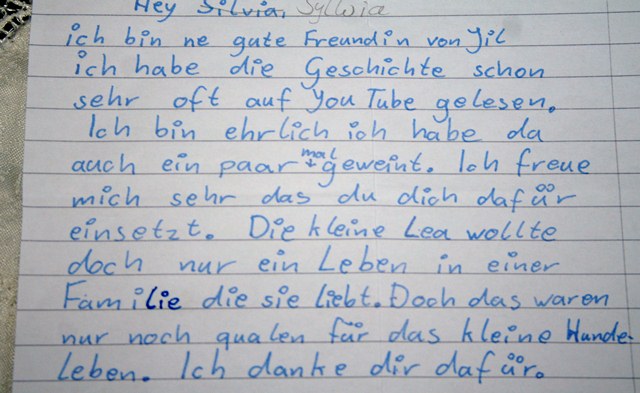 Hey Silvia, Sylwia
ich bin ne gute Freundin von Jil
ich habe die Geschichte schon
sehr oft auf YouTube gelesen.
Ich bin ehrlich ich habe da
auch ein paar mal geweint. Ich freue
mich sehr das du dich dafür
einsetzt. Die kleine Lea wollte
doch nur ein Leben in einer
Familie die sie liebt. Doch das waren
nur noch qualen für das kleine Hunde-
leben. Ich danke dir dafür.